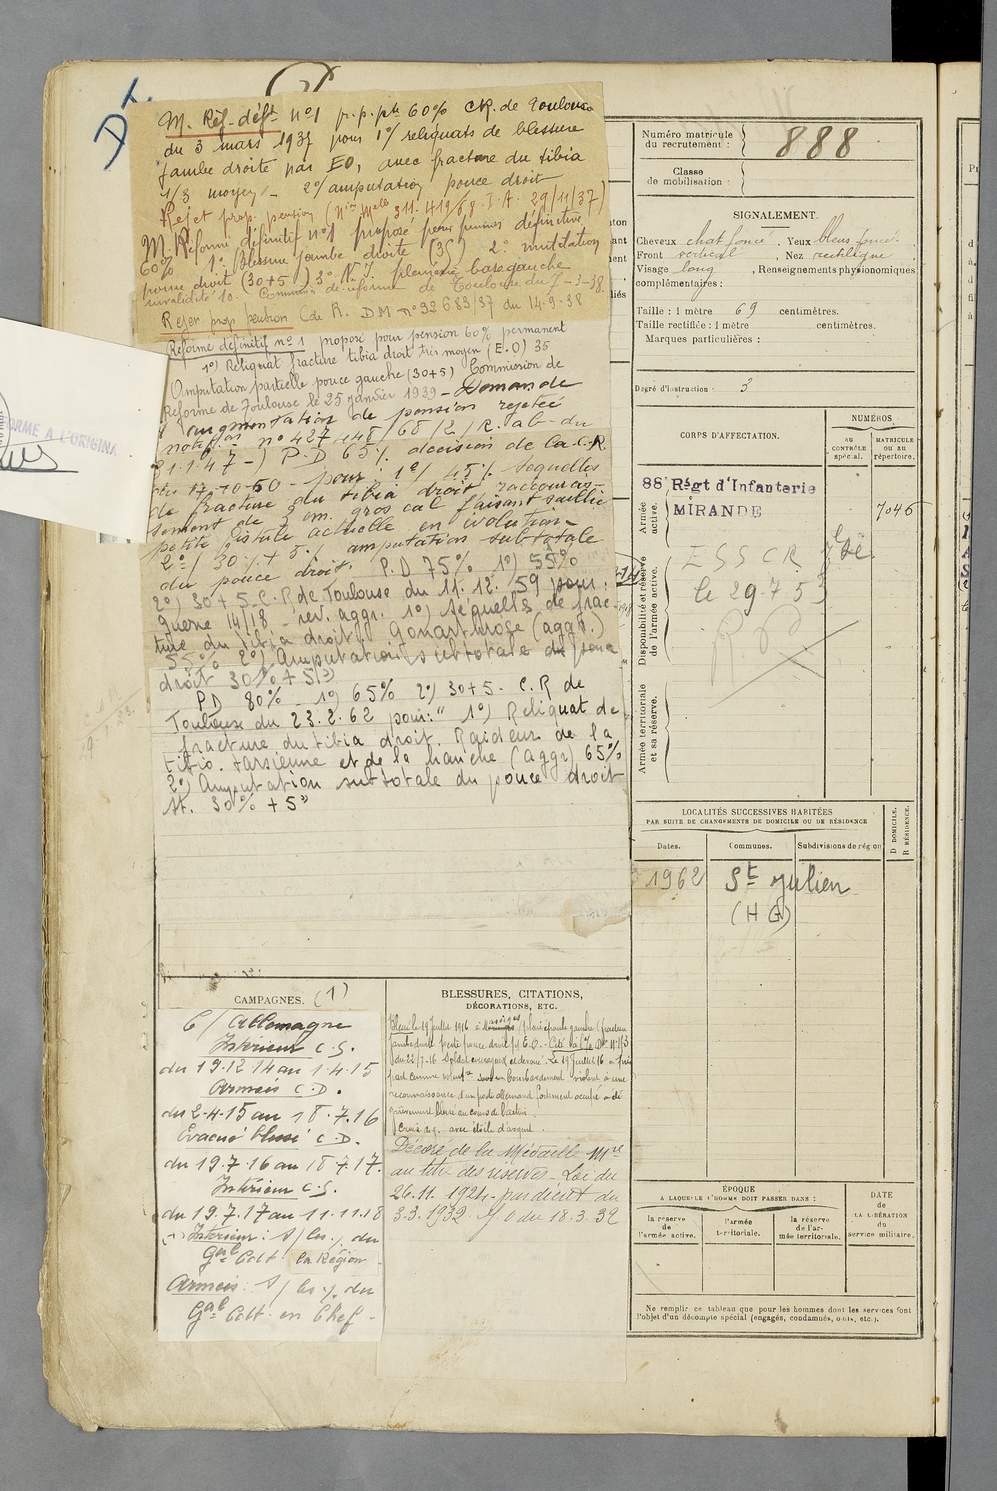 Dt.
M. Réf-déft n°1 p.p.pte 60% CR. de Toulouse
du 3 mars 1937 pour 1°/ reliquats de blessure
jambe droite par EO, avec fracture du tibia
1/3 moyen - 2°/ amputation pouce droit
Rejet prop. pension 29/11/37)
M. Réforme définitif n°1 proposé pour pension définitive
60% 1° Blessure jambe droite (35) 2° mutilation
pouce droit (30+5) 3° base gauche
invalidité 10. Commission de réforme de Toulouse du 7-3-38.
Rejet prop pension Cde R. DM n° 92 683/37 du 14.9.38
Réforme définitif n° 1 proposé pour pension 60% permanent
1°) Reliquat fracture tibia droit tiers moyen (E.O) 35
Amputation partielle pouce gauche (30+5) Commission de
Réforme de Toulouse le 25 janvier 1939 - Demande
d'augmentation de pension rejetée
n° 427 148/68/2/R. ab. du
31.1.47-) P.D 65% décision de la C.R
du 17-10-50 - pour 1°/ 45% séquelles
de fracture du tibia droit, raccourcis-
sement de 3 cm. gros cal faisant saillie
petite fistule actuelle en évolution -
2°/ 30% + 5% amputation subtotale
du pouce droit. P.D 75% 1°) 55%
2°) 30+5. C.R de Toulouse du 11.12.59 pour:
guerre 14/18 - rev. aggr. 1°) séquelles de frac-
ture du tibia droit. Gonarthrose (aggr.)
55% 2°) Amputation subtotale du pouce
droit 30% + 5 »
PD 80% - 1°) 65% 2°) 30+5 - C.R de
Toulouse du 23.2.62 pour: " 1°) Reliquat de
fracture du tibia droit. Raideur de la
tibio. tarsienne et de la hanche (aggr) 65%
2°) Amputation subtotale du pouce droit
st. 30% + 5 »
CAMPAGNES. (1)
C/ Allemagne
Intérieur C.S.
du 19.12.14 au 1.4.15
Armées C.D.
du 2-4-15 au 18.7.16
Evacué blessé C.D.
du 19.7.16 au 18.7.17.
Intérieur C.S.
du 19.7.17 au 11.11.18
(1) Intérieur: s/ les y. du
Gal Cdt la Région
Armées: s/ les y. du
Gal Cdt en Chef -
BLESSURES, CITATIONS,
DÉCORATIONS, ETC.
Blessé le 19 Juillet 1916
du 22/7.16 Soldat courageux et dévoué. Le 19 Juillet 16
sous un bombardement violent à une
reconnaissance d'un poste allemand fortement occupé a été
grièvement blessé au cours de l'action.
Croix de g. avec étoile d'argent.
Décoré de la Médaille Mre
au titre des réserves - Loi du
26.11.1924 - par décret du
3.3.1932 J.O du 18.3.32
Numéro matricule
du recrutement : 888
Classe
de mobilisation :
SIGNALEMENT.
Cheveux chat foncé , Yeux bleus foncé.
Front vertical , Nez rectiligne
Visage long , Renseignements physionomiques
complémentaires :
Taille : 1 mètre 69 centimètres.
Taille rectifiée : 1 mètre centimètres.
Marques particulières :
Degré d'instruction : 3
CORPS D'AFFECTATION.
NUMÉROS
AU CONTRÔLE spécial.
MATRICULE ou au répertoire.
Armée active.
88e Régt d'Infanterie
MIRANDE
7046
Disponibilité et réserve de l'armée active.
ESSCR
le 29.7.53
Armée territoriale et sa réserve.
LOCALITÉS SUCCESSIVES HABITÉES
PAR SUITE DE CHANGEMENTS DE DOMICILE OU DE RÉSIDENCE
Dates.
Communes.
Subdivisions de région
D DOMICILE.
R RÉSIDENCE.
1962 St Julien
(HG)
ÉPOQUE
À LAQUELLE L'HOMME DOIT PASSER DANS :
la réserve de l'armée active.
l'armée territoriale.
la réserve de l'armée territoriale.
DATE
de
LA LIBÉRATION
du
service militaire.
Ne remplir ce tableau que pour les hommes dont les services font
l'objet d'un décompte spécial (engagés, condamnés, omis, etc.).